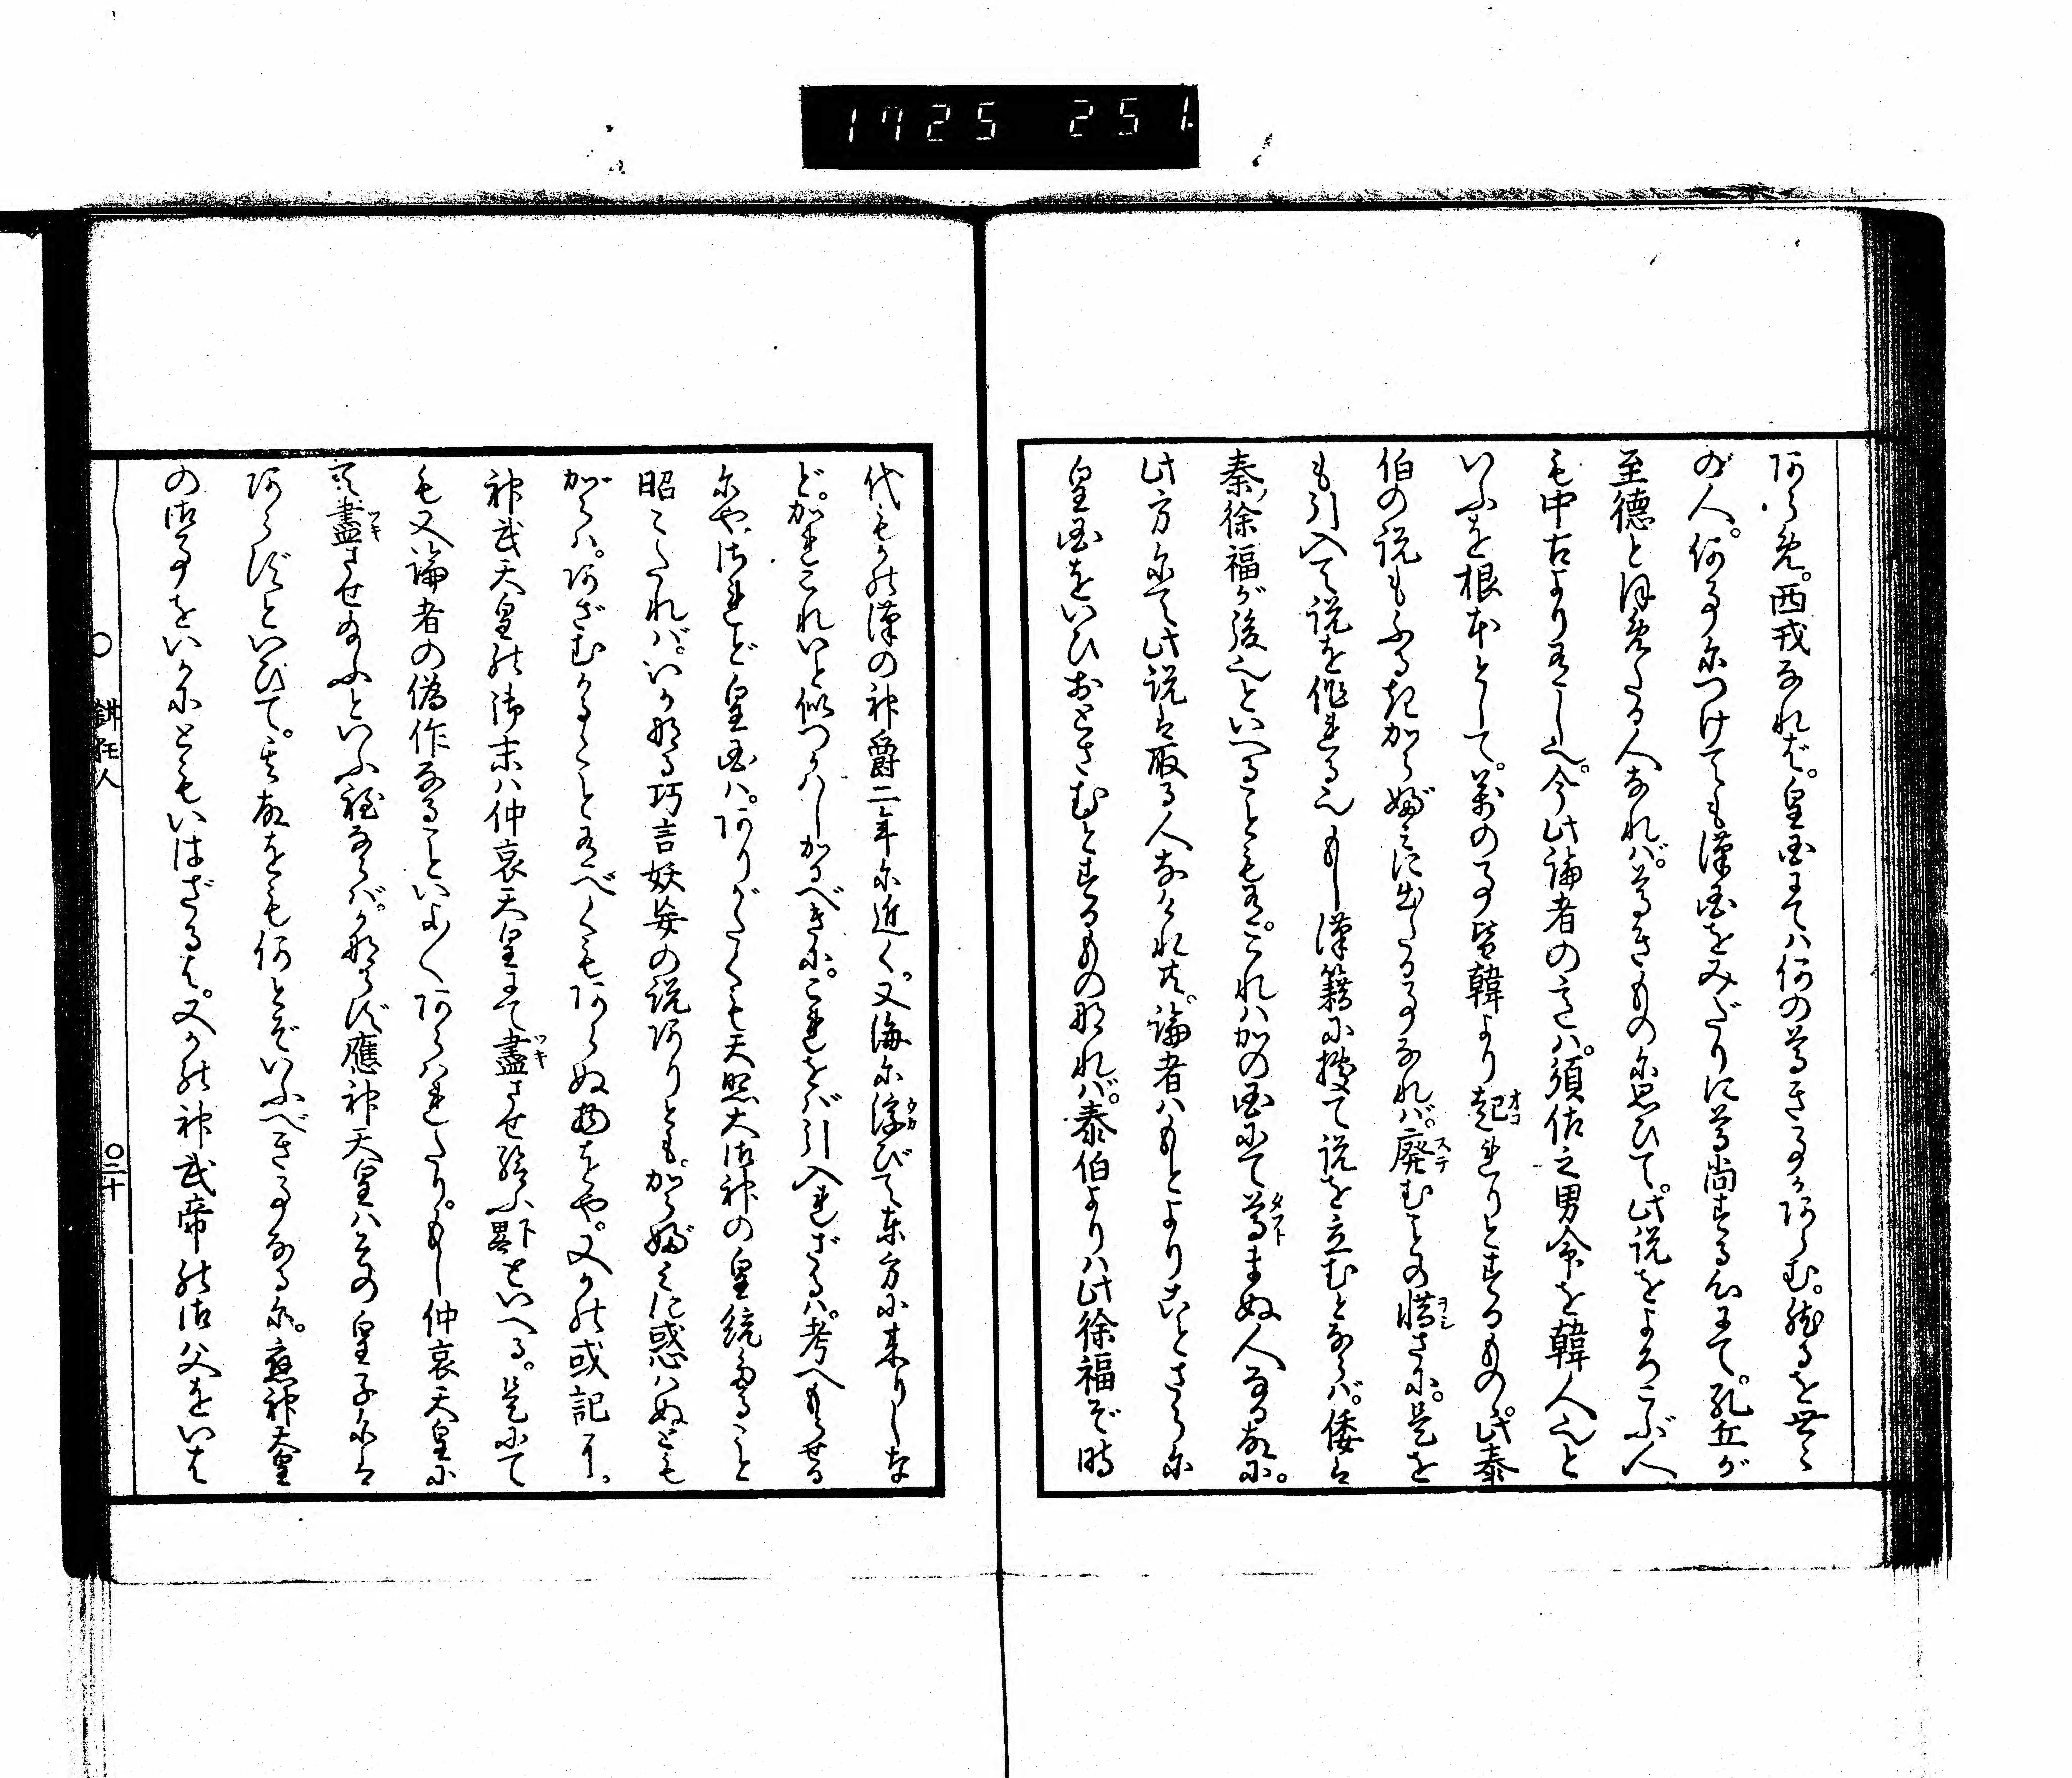 1725 251
あらめ。西戎なれば。皇国にてハ何の尊き事かあらむ。然るを世々
の人。何事につけても漢国をみだりに尊尚する心にて。孔丘が
至徳とほめたる人なれバ。尊きものに思ひて。此説をよろこぶ人
も中古より有し也。今此論者の意ハ。須佐之男命を韓人也と
いふを根本として。萬の事皆韓より起オコれりとするもの。此泰
伯の説もふるきからぶミに出たる事なれバ。廃ステむことの惜ヲシさに。是を
も引入て説を作れる也。もし漢籍に據て説を立むとならバ。倭は
秦ノ徐福が後也といへることも有。これハかの国にて尊タフトまぬ人なる故に。
此方にて此説は取る人なけれ共。論者ハもとよりことさらに
皇国をいひおとさむとするもの那れバ。泰伯よりハ此徐福ぞ時
代もかの漢の神爵二年に近く。又海に浮ウカびて東方に来りしな
ど。かれこれいと似つかハしかるべきに。これをバ引入れざるハ。考へもらせる
にや。されど皇国ハ。ありがたくも天照大御神の皇統なること
昭々たれバ。いか那る巧言妖妄の説ありとも。からぶミに惑ハぬども
がらハ。あざむかるゝこと有べくもあらぬ物をや。又かの或記ニ。
神武天皇の御末ハ仲哀天皇にて盡ツキさせ給ふ下畧といへる。是にて
も又論者の偽作なることいよ〱あらハれたり。もし仲哀天皇に
て盡ツキさせ給ふといふ程ならバ。かならず應神天皇ハその皇子には
あらずといひて。其故をも何とぞいふべき事なるに。應神天皇
の御事をいかにともいはざるは。又かの神武帝の御父をいは
〇 鉗狂人
〇二十